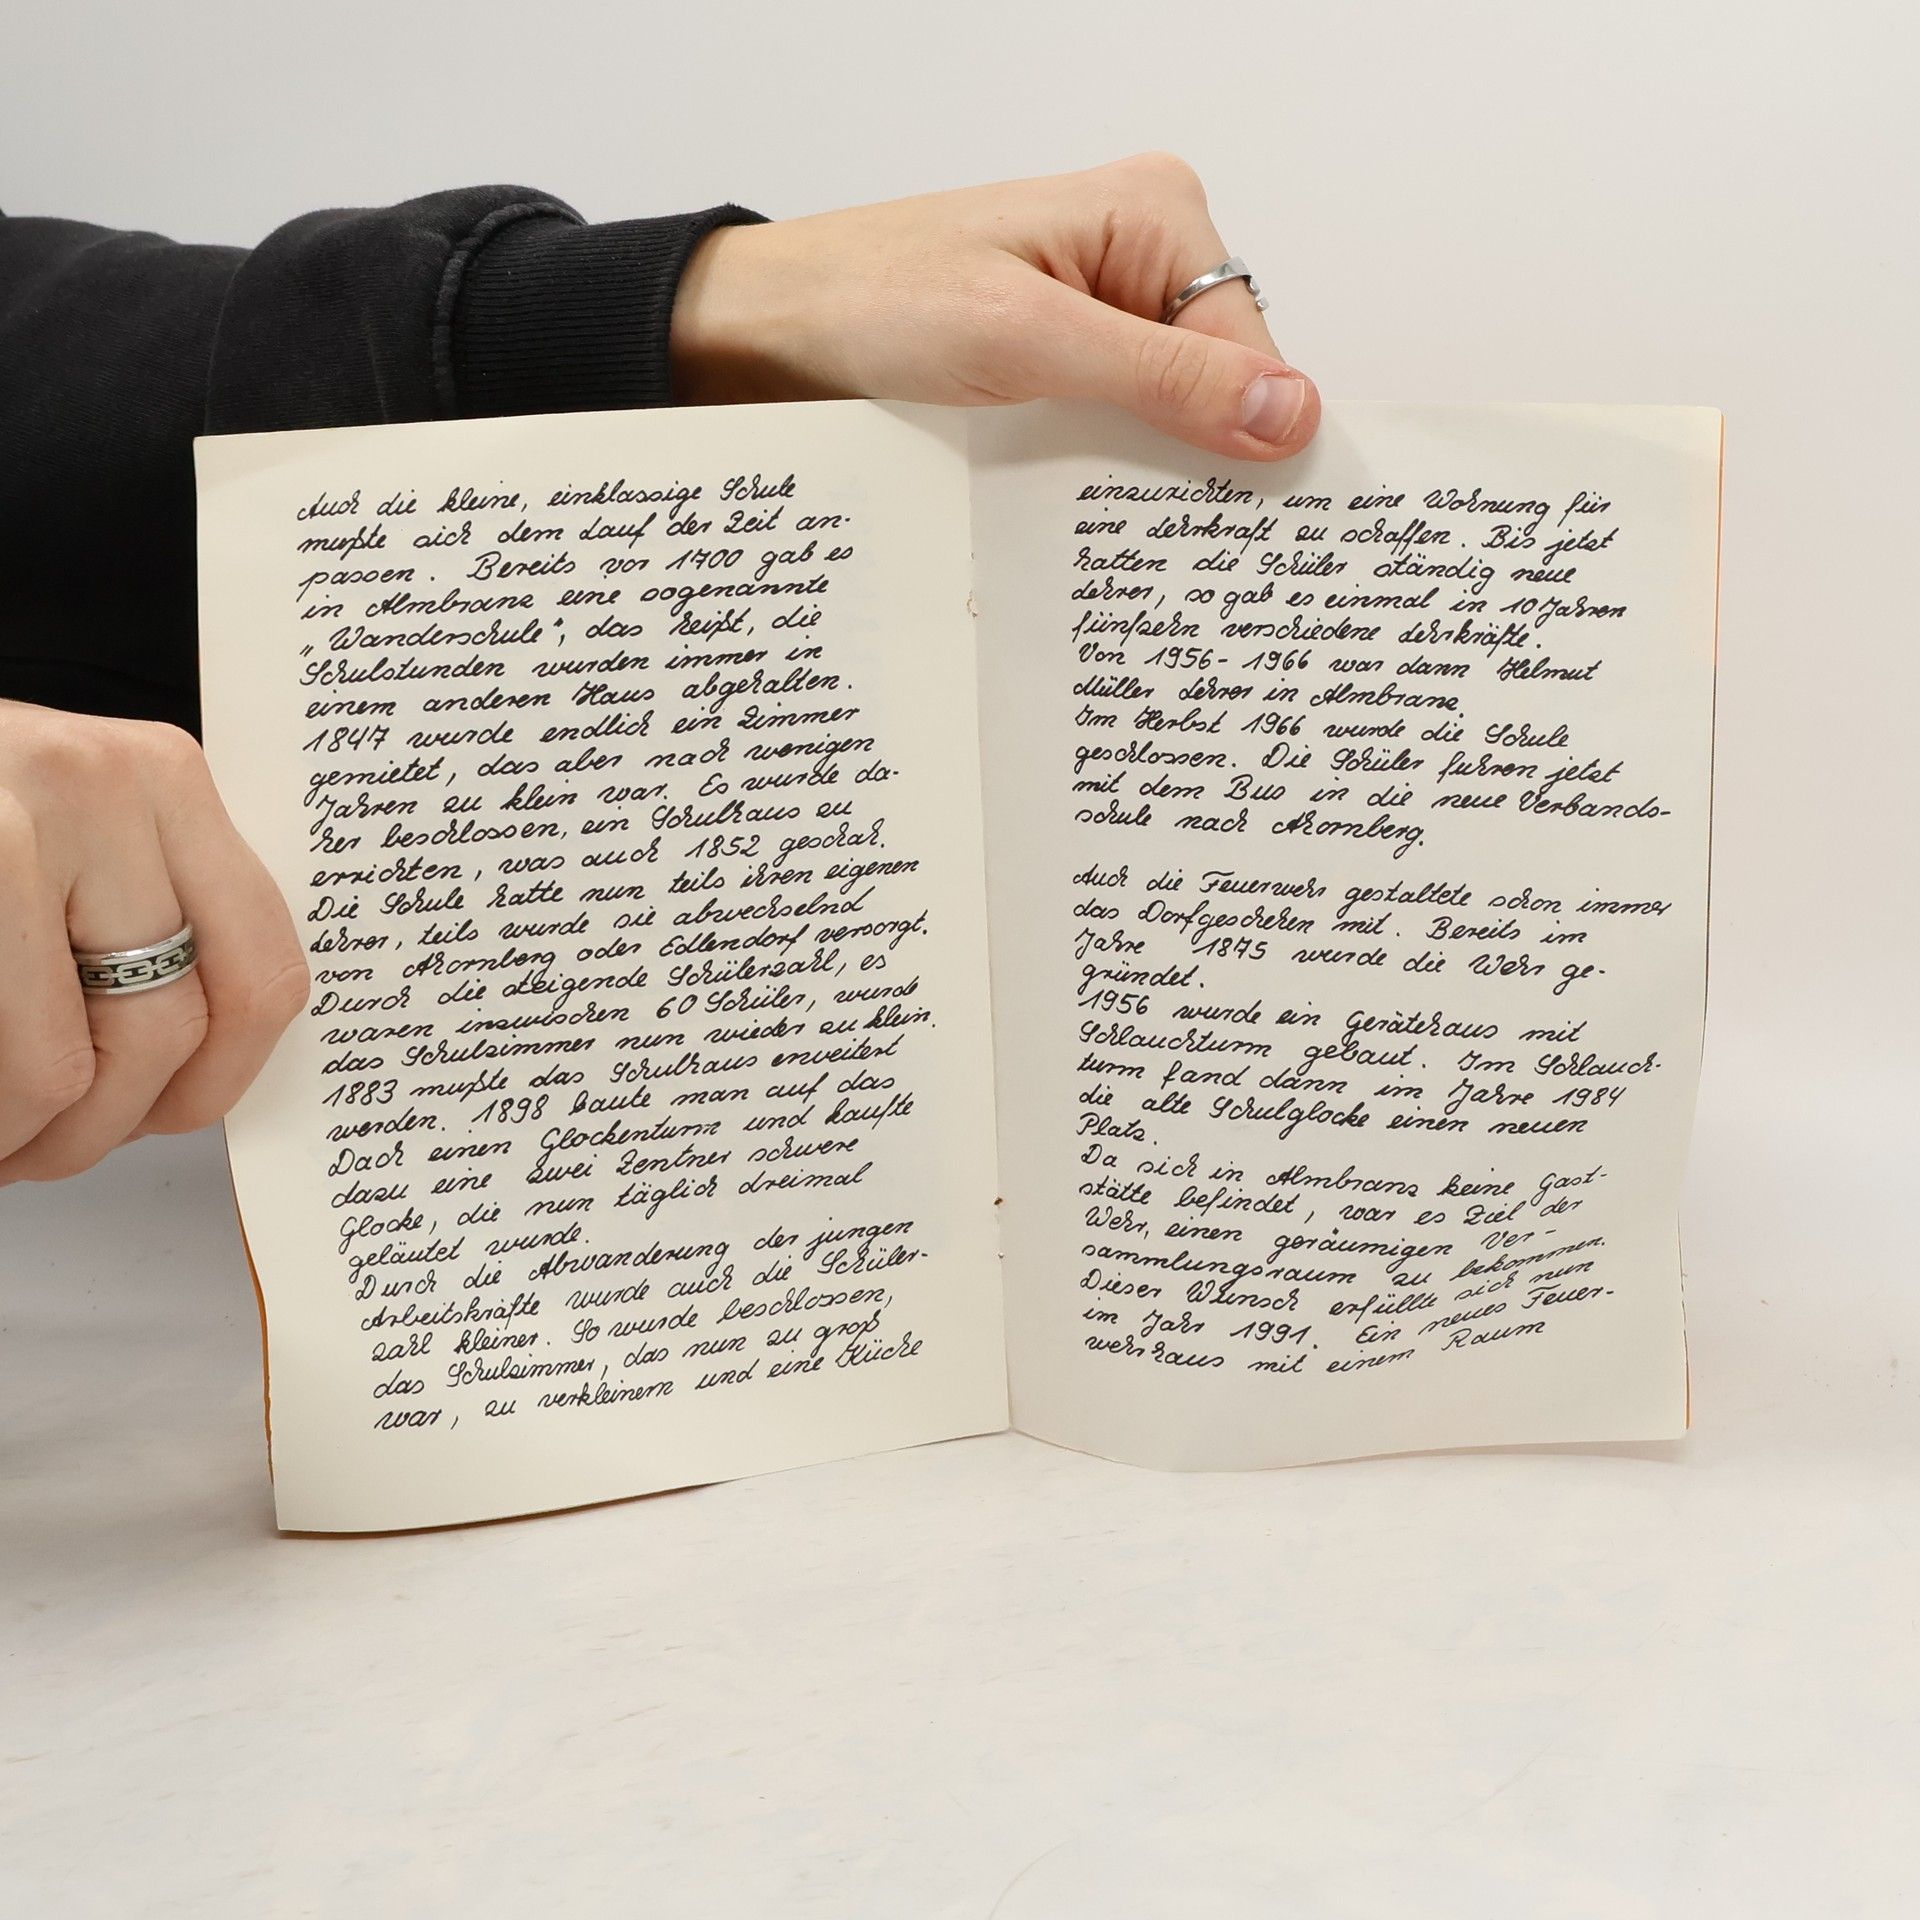 Auch die kleine, einklassige Schule
mußte sich dem Lauf der Zeit an-
passen. Bereits vor 1700 gab es
in Almbranz eine sogenannte
„Wanderschule", das heißt, die
Schulstunden wurden immer in
einem anderen Haus abgehalten.
1847 wurde endlich ein Zimmer
gemietet, das aber nach wenigen
Jahren zu klein war. Es wurde da-
her beschlossen, ein Schulhaus zu
errichten, was auch 1852 geschah.
Die Schule hatte nun teils ihren eigenen
Lehrer, teils wurde sie abwechselnd
von Ahornberg oder Edlendorf versorgt.
Durch die steigende Schülerzahl, es
waren inzwischen 60 Schüler, wurde
das Schulzimmer nun wieder zu klein.
1883 mußte das Schulhaus erweitert
werden. 1898 baute man auf das
Dach einen Glockenturm und kaufte
dazu eine zwei Zentner schwere
Glocke, die nun täglich dreimal
geläutet wurde.
Durch die Abwanderung der jungen
Arbeitskräfte wurde auch die Schüler-
zahl kleiner. So wurde beschlossen,
das Schulzimmer, das nun zu groß
war, zu verkleinern und eine Küche
einzurichten, um eine Wohnung für
eine Lehrkraft zu schaffen. Bis jetzt
hatten die Schüler ständig neue
Lehrer, so gab es einmal in 10 Jahren
fünfzehn verschiedene Lehrkräfte.
Von 1956-1966 war dann Helmut
Müller Lehrer in Almbranz.
Im Herbst 1966 wurde die Schule
geschlossen. Die Schüler fuhren jetzt
mit dem Bus in die neue Verbands-
schule nach Ahornberg.
Auch die Feuerwehr gestaltete schon immer
das Dorfgeschehen mit. Bereits im
Jahre 1875 wurde die Wehr ge-
gründet.
1956 wurde ein Gerätehaus mit
Schlauchturm gebaut. Im Schlauch-
turm fand dann im Jahre 1984
die alte Schulglocke einen neuen
Platz.
Da sich in Almbranz keine Gast-
stätte befindet, war es Ziel der
Wehr, einen geräumigen Ver-
sammlungsraum zu bekommen.
Dieser Wunsch erfüllte sich nun
im Jahr 1991. Ein neues Feuer-
wehrhaus mit einem Raum